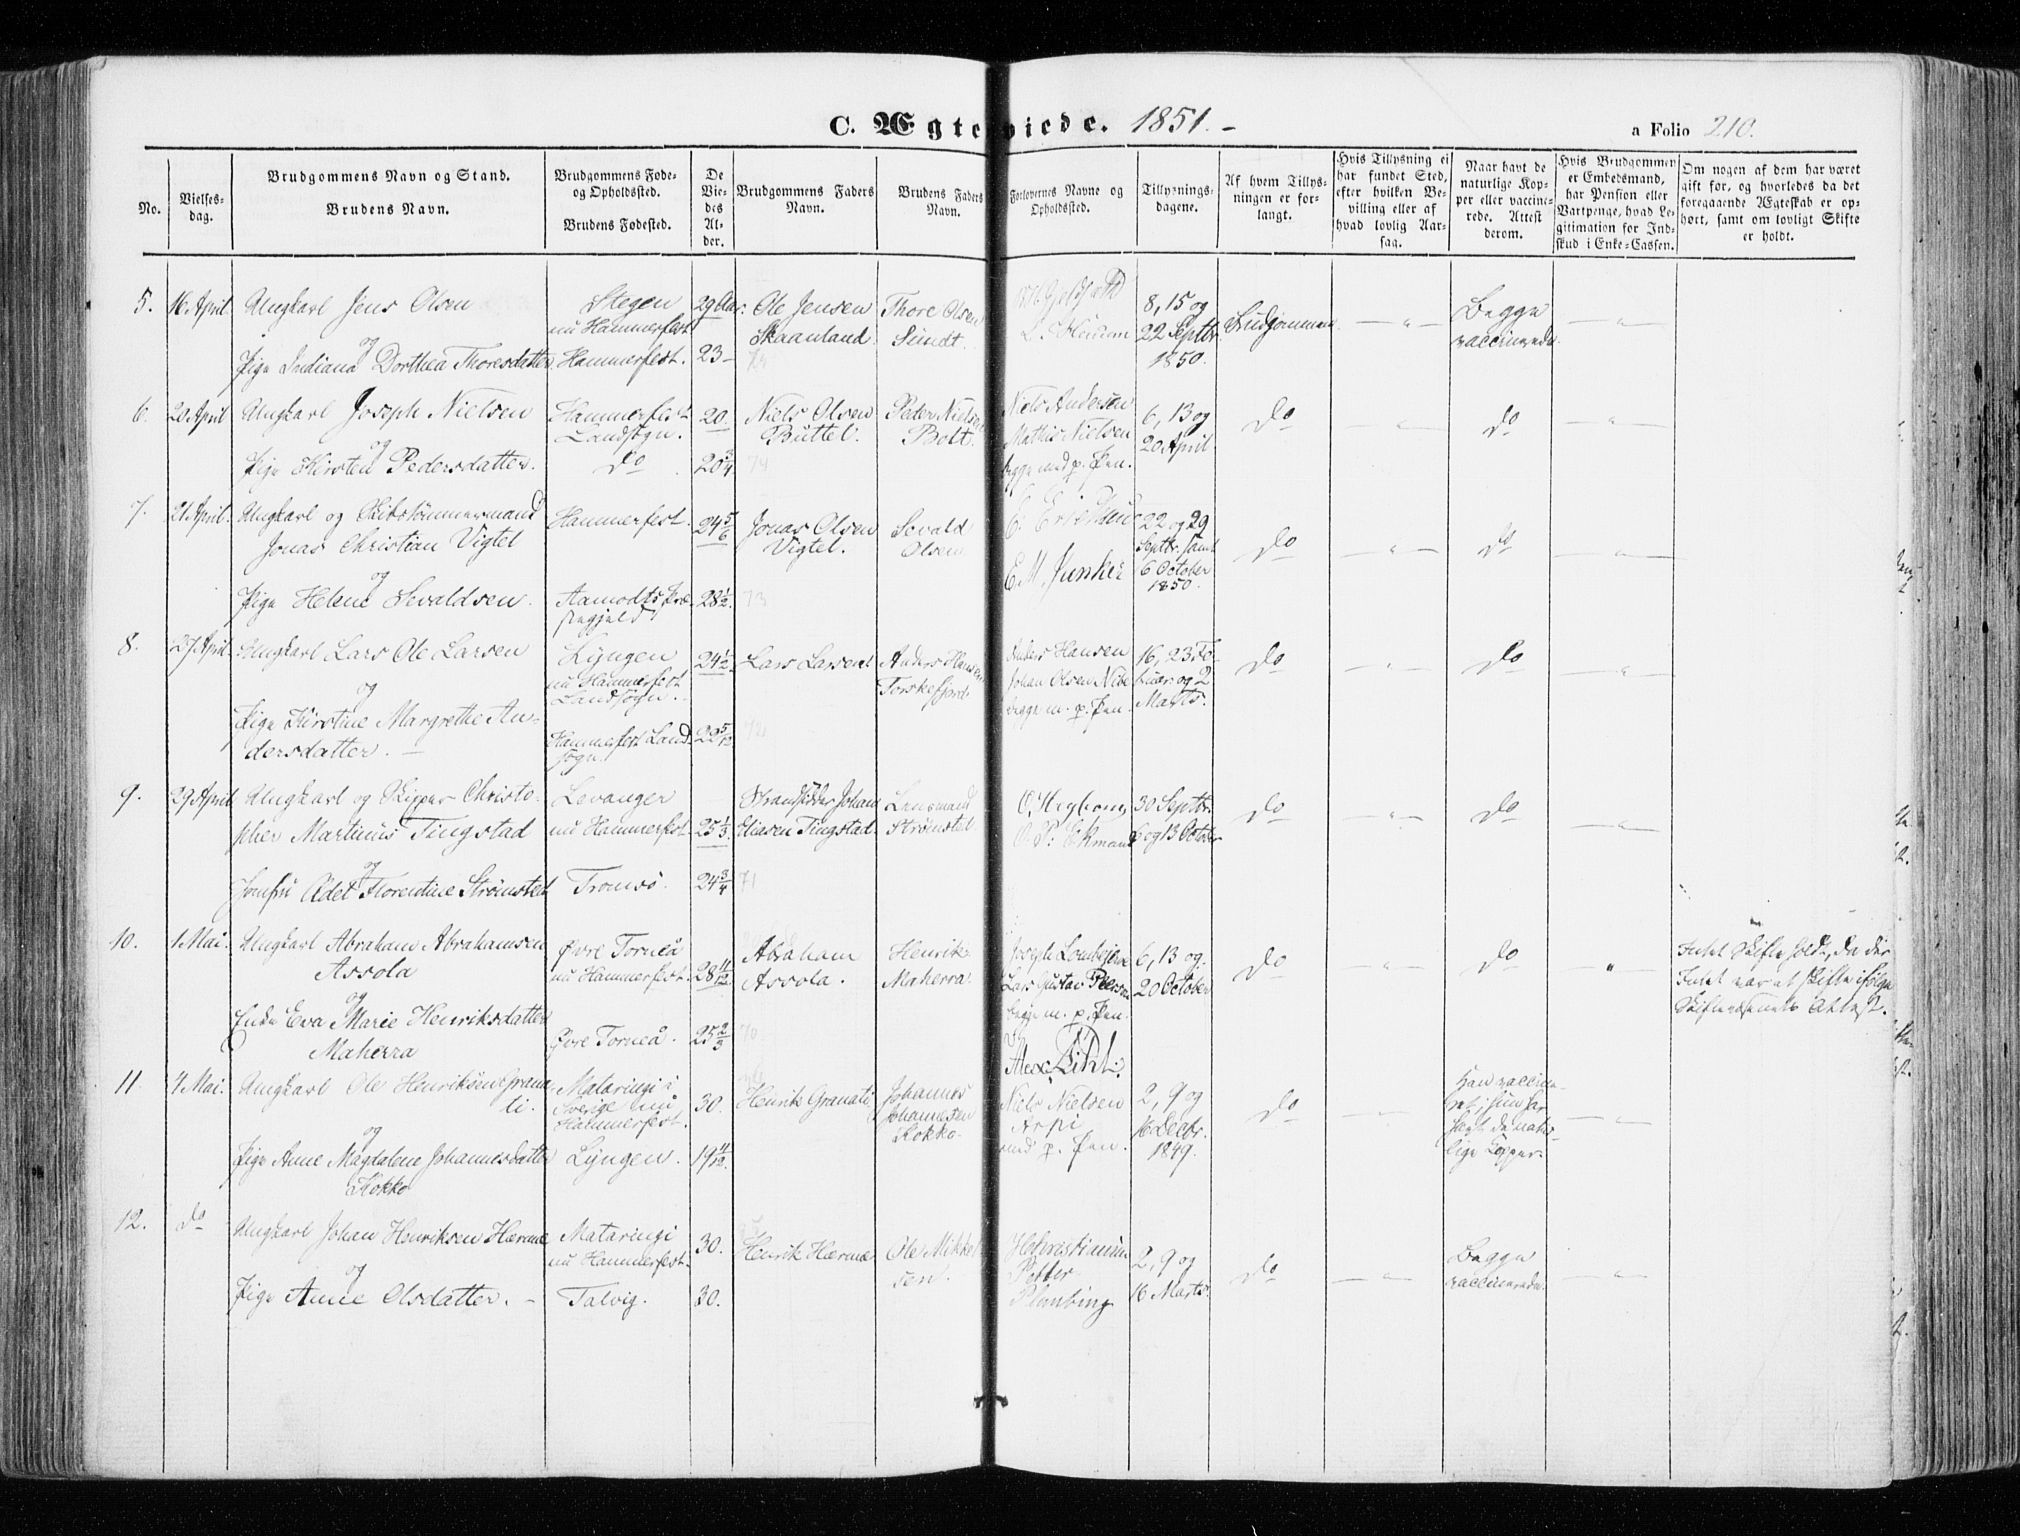 C. Ægteviede. 1851. -
a Folio 210.
No.
Vielses-
dag.
Brudgommens Navn og Stand.
Brudens Navn.
Brudgommens Føde-
og Opholdssted.
Brudens Fødested.
De
Vie-
des
Al-
der.
Brudgommens Faders
Navn.
Brudens Faders
Navn.
Forlovernes Navne og
Opholdssted.
Tillysnings-
dagene.
Af hvem Tillys-
ningen er for-
langt.
Hvis Tillysning ei
har fundet Sted,
efter hvilken Be-
villing eller af
hvad lovlig Aar-
sag.
Naar havt de
naturlige Kop-
per eller vaccine-
rede. Attest
derom.
Hvis Brudgommen
er Embedsmand,
har Pension eller
Vartpenge, hvad Le-
gitimation for Ind-
skud i Enke-Cassen.
Om nogen af dem har været
gift før, og hvorledes da det
foregaaende Ægteskab er op-
hørt, samt om lovligt Skifte
er holdt.
5. 16 April. Ungkarl Jens Olsen
og
Pige Indiana Dorthea Thoresdatter
Stegen
nu Hammerfest
Hammerfest.
29 Aar.
23 -
Ole Jensen
Skaanland.
Thore Olsen
Sundt.
8, 15 og
22 Septbr.
1850.
Brudgommen
— " —
Begge
vaccinerede.
— " —
6. 20 April Ungkarl Joseph Nielsen
og
Pige Kirsten Pedersdatter.
Hammerfest
Landsogn.
do
20.
20 3/4
74
Niels Olsen
Buttel.
Peder Nielsen
Bolt.
Niels Andersen
Mathis Nielsen
begge med p. Pen.
6, 13 og
20 April
do
— " —
do
— " —
7. 21 April. Ungkarl og Skibstømmermand
Jonas Christian Vigtel
og
Pige Helene Sevaldsen.
Hammerfest.
Aamodts Præ-
stegjeld
24 5/6
28 1/2.
73
Jonas Olsen
Vigtel.
Sevald
Olsen
E. M. Junker
22 og 29
Septbr. samt
6 October
1850.
do
— " —
do
— " —
8. 27 April. Ungkarl Lars Ole Larsen
og
Pige Kirstine Margrethe An-
dersdatter. —
Lyngen
nu Hammerfest
Landsogn.
Hammerfest Land-
sogn.
24 1/2
22 5/12
72
Lars Larsen
Anders Hansen
Torskefjord.
Anders Hansen
Johan Olsen Nibe
begge m. p. Pen.
16, 23 Fe-
bruar og 2
Marts.
do
— " —
do
— " —
9. 29 April Ungkarl og Skipper Christo-
pher Martinus Tingstad
og
Jomfru Adet Florentine Strømsted
Levanger
nu Hammerfest.
Tromsö.
25 1/3.
24 3/4
71
Strandsidder Johan
Eliasen Tingstad.
Lensmand
Strømsted
O. P. Ekman
30 Septbr.
6 og 13 October
do
— " —
do
— " —
10. 1 Mai. Ungkarl Abraham Abrahamsen
Assola
og
Enke Eva Marie Henriksdatter
Maherra
Øvre Torneå
nu Hammerfest.
Øvre Torneå.
28 11/12
25 2/3
70
Abraham
Assola.
Henrik
Maherra.
Lars Gustav Peersen
begge m. p. Pen.
6, 13 og
20 October
do
— " —
do
"
Intet Skifte holdt, da der
Intet var at skifte ifølge
Skifterettens Attest.
11. 4 Mai. Ungkarl Ole Henriksen Grana-
ti.
og
Pige Anne Magdalene Johannesdatter
Kokko
Mataringi i
Sverige nu
Hammerfest.
Lyngen.
30.
19 11/12.
Henrik Granati
Johannes
Johannesen
Kokko.
Alex. Pihl.
Niels Nielsen
Arpi
med p. Pen.
2, 9 og
16 Decbr.
1849.
do
— " —
Han vaccine-
ret; hun har
havt de natur-
lige Kopper.
— " —
12. do Ungkarl Johan Henriksen Herme
og
Pige Anne Olsdatter. —
Mataringi
nu Hammerfest.
Talvig.
30.
30.
Henrik Herme
Ole Mikkel-
sen.
Petter
Planting
2, 9 og
16 Marts.
do
— " —
Begge
vaccinerede.
— " —